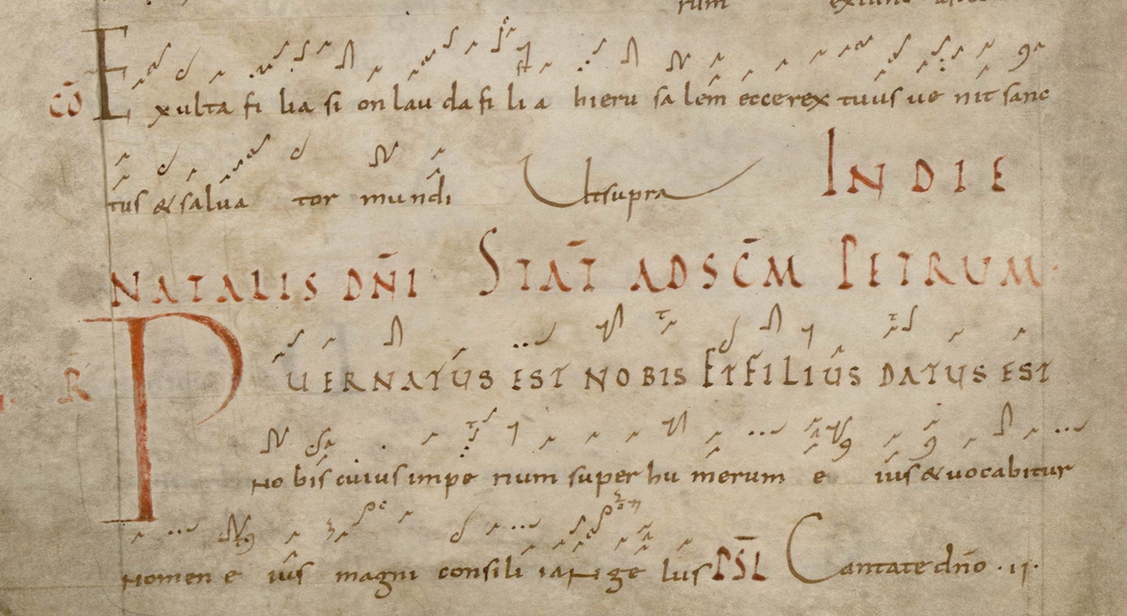 rum
Cō Exulta fi lia si on lau da fi li a hieru sa lem̄ ecce rex tuus ve nit sanc
tus & salva tor mundi Ut supra IN DIE
NATALIS DÑI STAT̄ AD SC̄M PETRUM·
R PUER NATUS EST NOBIS ET FILIUS DATUS EST
No bis cuius impe rium super hu merum e ius & vocabitur
nomen e ius magni consili i aNge lus PSL̄ Cantate dño · ii·